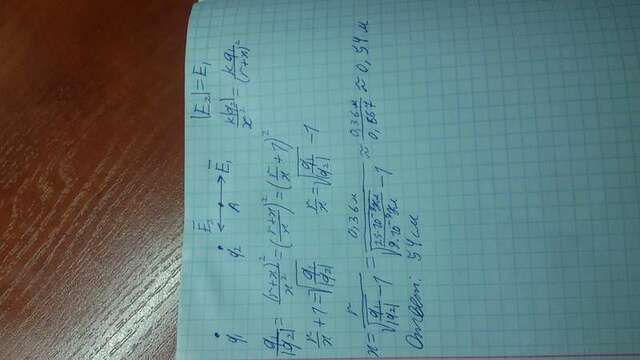 q₁ q₂ E⃗₂ A E⃗₁ |E₂| = E₁
k|q₂|/x² = kq₁/(r+x)²
q₁/|q₂| = (r+x)²/x² = ((r+x)/x)² = (r/x + 1)²
r/x + 1 = √(q₁/|q₂|) r/x = √(q₁/|q₂|) − 1
x = r/(√(q₁/|q₂|) − 1) = 0,36 м/(√(25·10⁻⁹Кл/9·10⁻⁹Кл) − 1) ≈ 0,36 м/0,667 ≈ 0,54 м
Ответ: 54 см